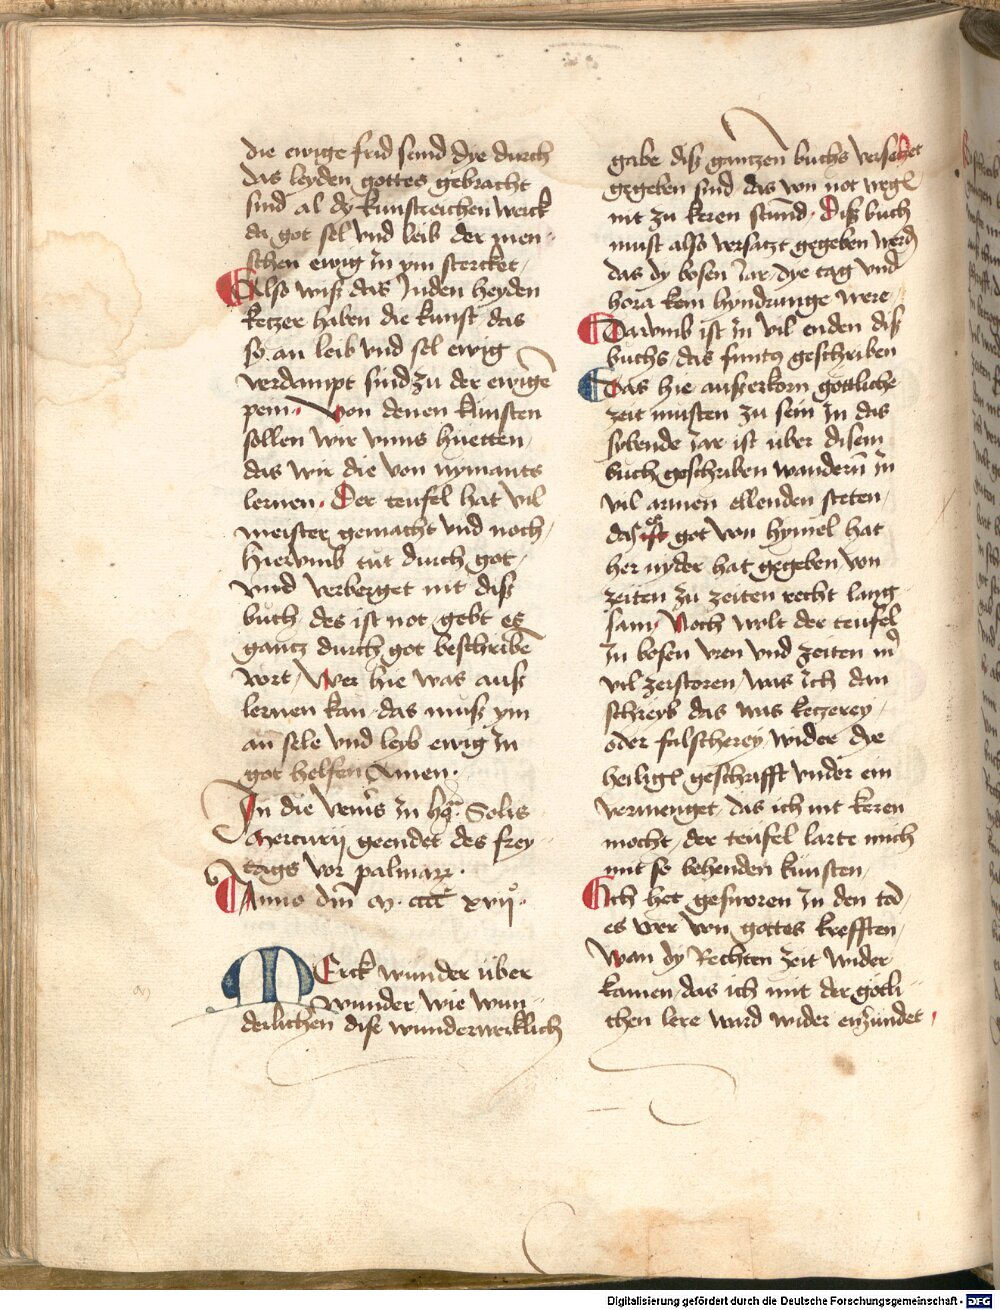 die ewige frid seind dye durch
das leyden gottes gebracht
sind al dy kunstreichen werck
da got sel vnd leib der men-
schen ewig in ym stercket /
Also wiß das Juden heyden
ketzer haben die kunst das
so an leib vnd sel ewig
verdampt sind zu der ewigē
pein. Von denen kunsten
sollen wir vnns huetten /
das wir die von nymants
lernen. Der teufel hat vil
meister gemacht vnd noch /
Hiervmb tut durch got /
vnd verberget nit diß
buch des ist not gebt es
gantz durch got beschribē
vort / Wer hie was auß
lernen kan das muß ym
an sele vnd leyb ewig in
got helfen Amen.
In die veneris in hora Solis
Mercurij geendet des frey-
tags vor palmarum.
Anno dm̄ M. cccc xvijo.
Merck wunder über
wunder / wie wun-
derlichen dise wunderwerklich
gabe diß gantzen buchs versetzet
gegeben sind das von not wegē
nit zu keren stuend. Diß buch
must also versatzt gegeben werdē
das dy bosen Jar / dye tag vnd
hora kein hyndrunge were /
Darvmb ist in vil enden diß
buchs das geschriben
Das hie außerkorn gottliche
zeit musten zu sein in das
sybende jar ist uber disem
buch geschriben wandern in
vil armen ellenden steten /
das es got von hymel hat
her nyder hat gegeben von
zeiten zu zeiten recht lang
sam / Noch wolt der teufel
in bosen vren vnd zeiten mir
vil zerstoren / was ich dan
schreyb das was ketzerey /
oder falscherey / wider dye
heilige geschrifft vnder ein
vermenget / das ich nit keren
mocht / der teufel larte mich
mit so behenden kunsten /
Ich het gesworen in den tod
es wer von gottes krefften /
Wan dy Rechten zeit wider
kamen / das ich mit der götli-
chen lere ward wider enzundet /
Digitalisierung gefördert durch die Deutsche Forschungsgemeinschaft - DFG